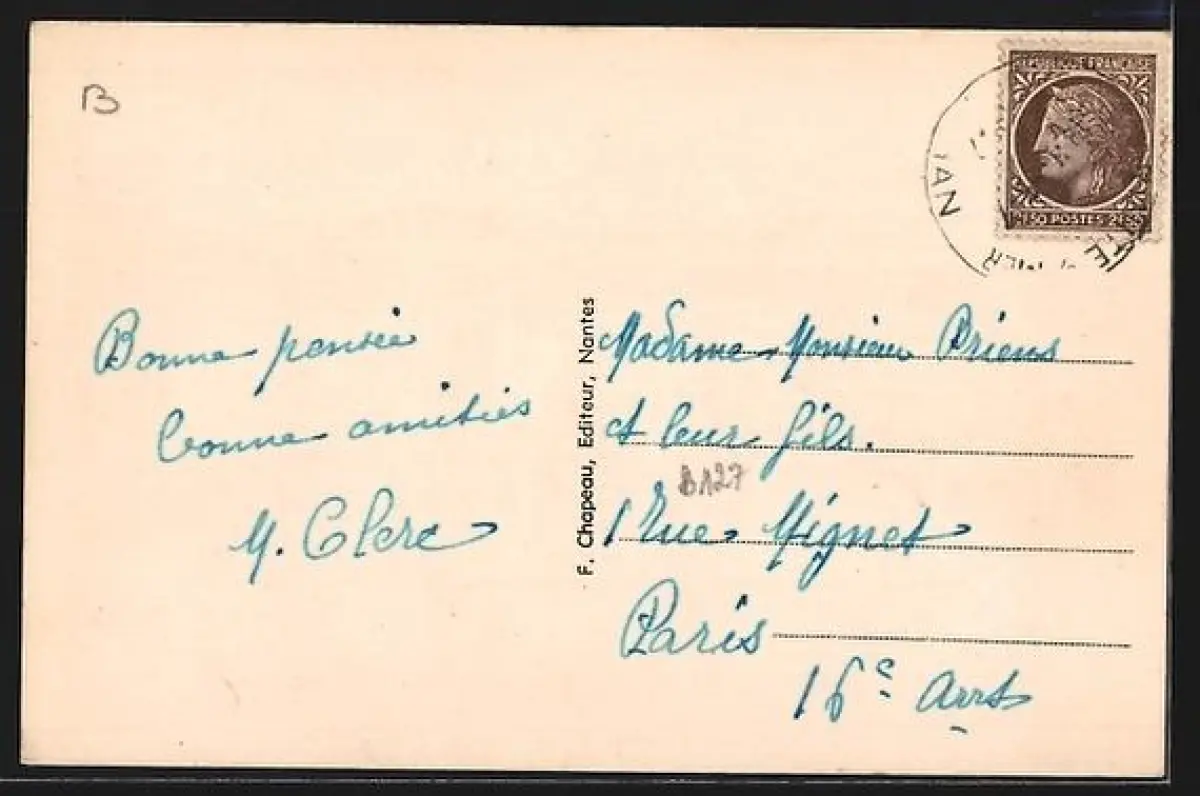 B
RÉPUBLIQUE FRANÇAISE
1F50 POSTES 1F50
Bonne pensée
bonne amitiés
M. Clerc
F. Chapeau, Editeur, Nantes
Madame Monsieur Priens
et leur fils.
B127
1 Rue Mignet
Paris
16e Arrt